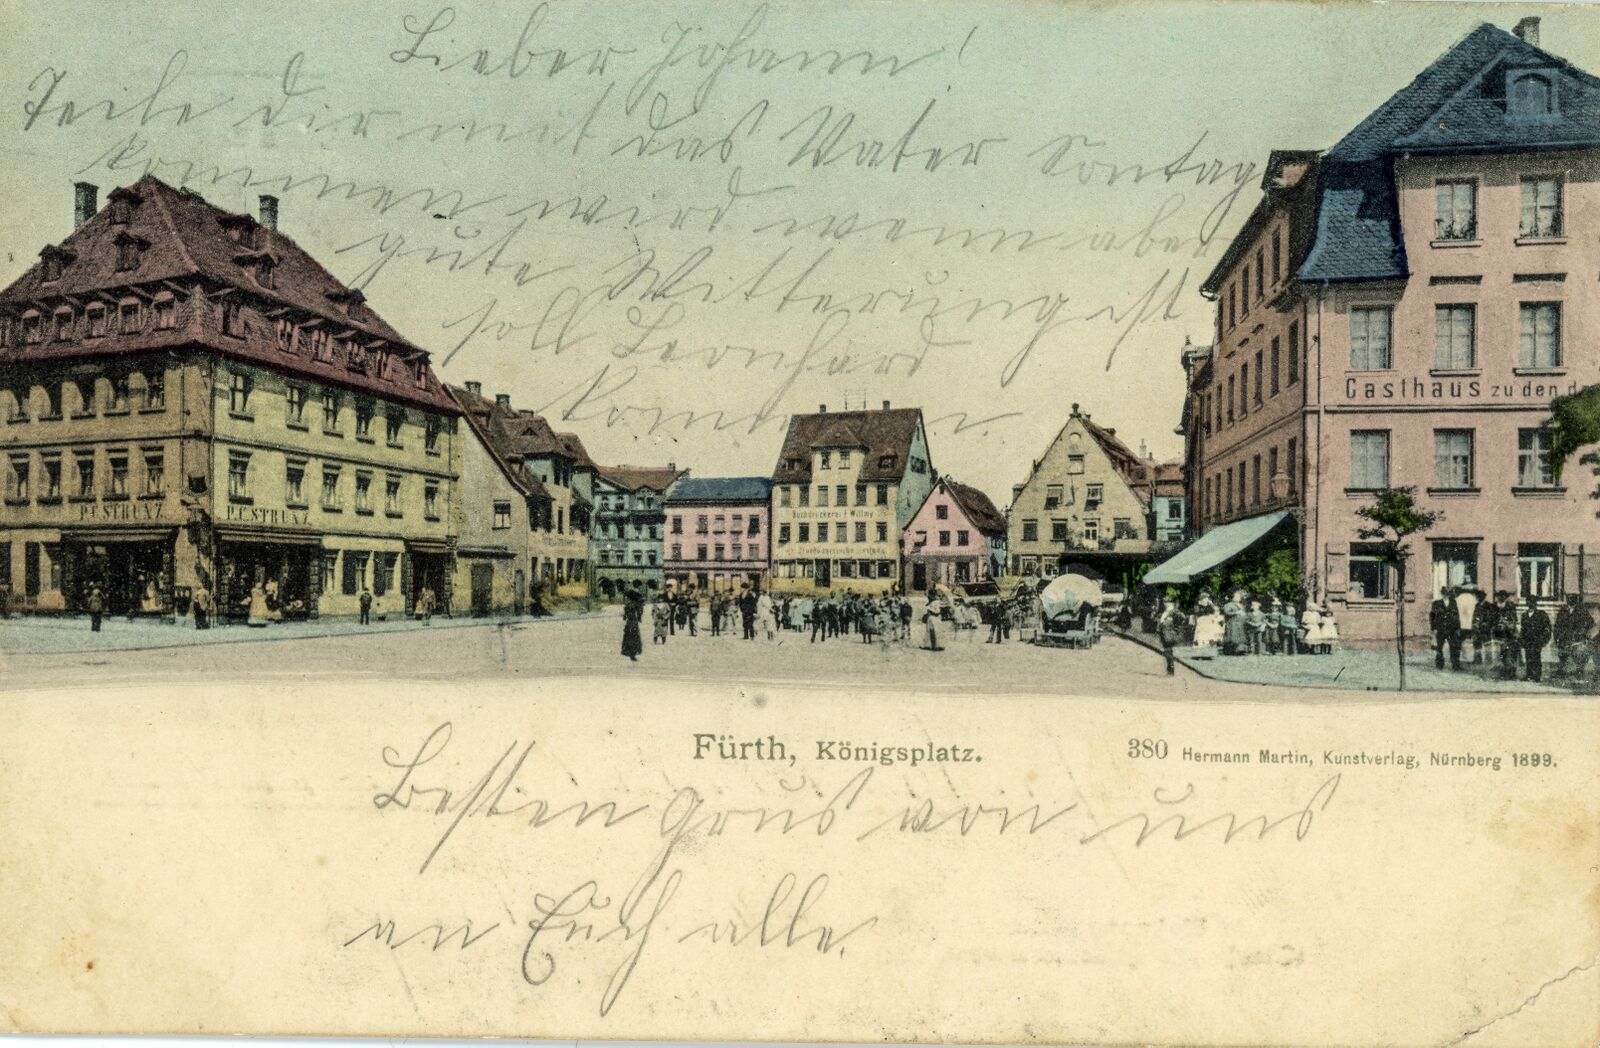 Lieber Johann!
Teile dir mit das Vater Sontag
kommen wird wenn aber
gute Witterung ist
soll Leonhard
kommen
P.C. STRUNZ.
P.C. STRUNZ.
Buchdruckerei J. Willmy
Gasthaus zu den
Fürth, Königsplatz.
380 Hermann Martin, Kunstverlag, Nürnberg 1899.
Besten Grus von uns
an Euch alle.